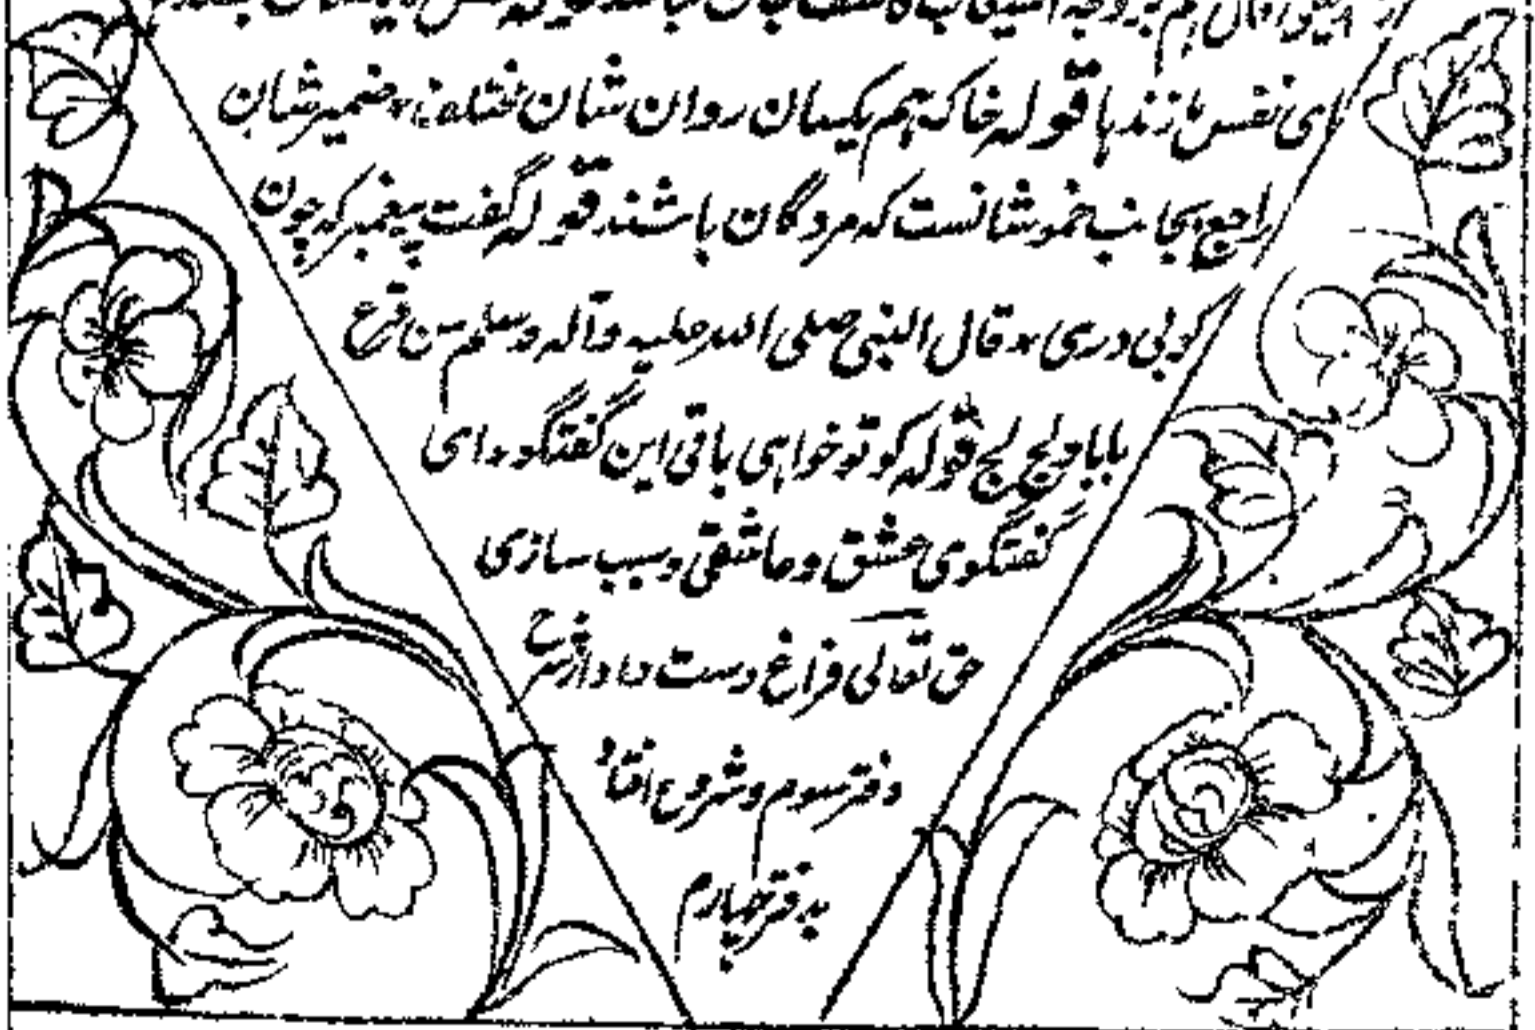 ای نفس بازندها قوله خاک هم یکسان روان شان مختلف، ضمیر شان
راجع بجانب خموشانست که مردگان باشند قوله گفت پیغمبر که چون
کوبی دری، و قال النبی صلی الله علیه وآله وسلم من قرع
بابا ولج ولج قوله کو تو خواهی باقی این گفتگو، ای
گفتگوی عشق و عاشقی و سبب سازی
حق تعالی فراغ دست داد از شرح
دفتر سوم و شروع افتاد
بدفتر چهارم